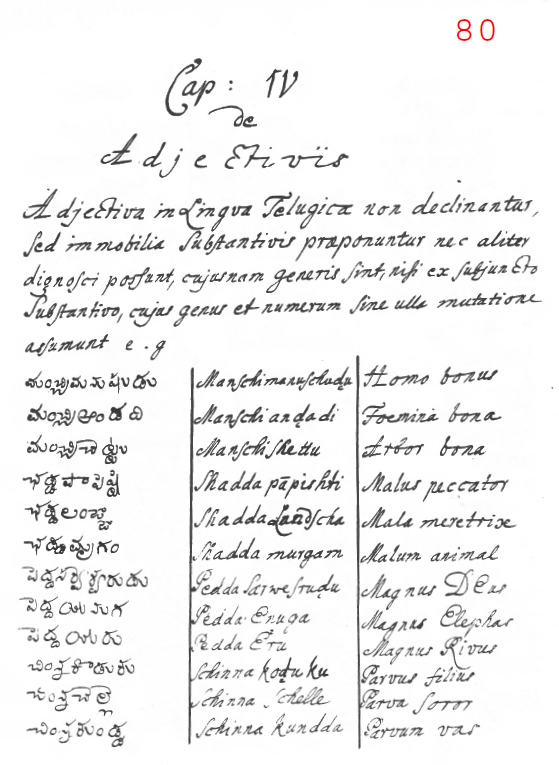 80
Cap: IV
de
Adjectiviis
Adjectiva in Lingva Telugicæ non declinantur,
sed immobilia Substantivis præponuntur nec aliter
dignosci possunt, cujusnam generis sint, nisi ex subjuncto
Substantivo, cujus genus et numerum sine ulla mutatione
assumunt e. g
మంచ్చిమనుషుడు Manschi manuschuḍu Homo bonus
మంచ్చిఆండది Manschi anḍadi Foemina bona
మంచ్చిచెట్టు Manschi shettu Arbor bona
ఛడ్డపాపిష్టి Shadda pāpishti Malus peccator
ఛడ్డలంజ్జా Shadda Landscha Mala meretrix
ఛడ్డమ్రుగం Shadda murgam Malum animal
పెద్దసర్వేశ్వరుడు Pedda sarwesrudu Magnus DEus
పెద్దయేనుగ Pedda Enuga Magnus Elephas
పెద్దయేరు Pedda Eru Magnus Rivus
చింన్నకొడుకు Schinna koḍuku Parvus filius
చింన్నచెల్లె Schinna Schelle Parva soror
చింన్నకుండ్డ Schinna kundda Parvum vas